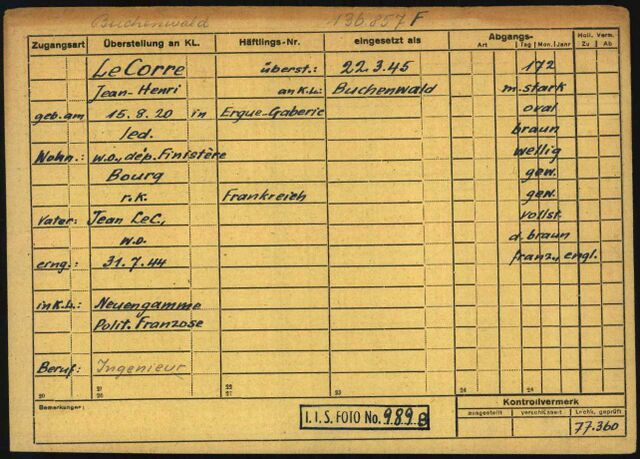 Buchenwald 136.857 F
Zugangsart Überstellung an KL. Häftlings-Nr. eingesetzt als Abgangs- Holl. Verm.
Art Tag Mon. Jahr Zu Ab
Le Corre überst.: 22.3.45 172
Jean-Henri an K.L.: Buchenwald m.stark
geb.am 15.8.20 in Ergue-Gaberie oval
led. braun
Wohn.: w.o., dép. Finistère wellig
Bourg gew.
r.k. Frankreich gew.
Vater: Jean LeC., vollst.
w.o. d. braun
erng.: 31.7.44 franz., engl.
in K.L.: Neuengamme
Polit. Franzose
Beruf: Ingenieur
20 21 22 23 24 24
26 27
Bemerkungen: Kontrollvermerk
I.T.S. FOTO No. 989 8 ausgestellt verschlüsselt Lochk. geprüft
77.360